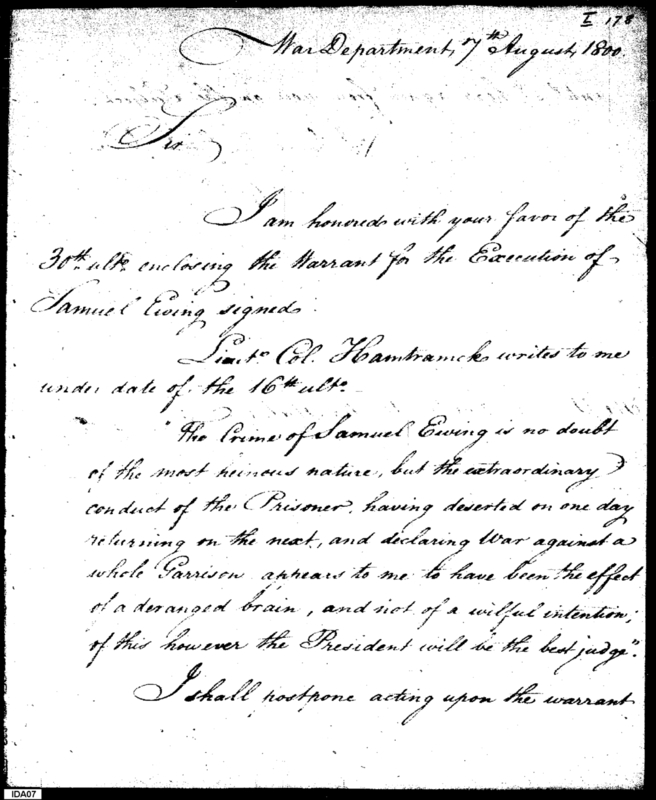 I 178
War Department, 7th August, 1800.
Sir
I am honored with your favor of the
30th ulto. enclosing the Warrant for the Execution of
Samuel Ewing signed.
Lieut. Col. Hamtramck writes to me
under date of the 16th ulto.
"The Crime of Samuel Ewing is no doubt
of the most heinous nature, but the extraordinary
conduct of the Prisoner, having deserted on one day
returning on the next, and declaring War against a
whole Garrison appears to me to have been the effect
of a deranged brain, and not of a wilful intention;
of this however the President will be the best judge".
I shall postpone acting upon the warrant
IDA07